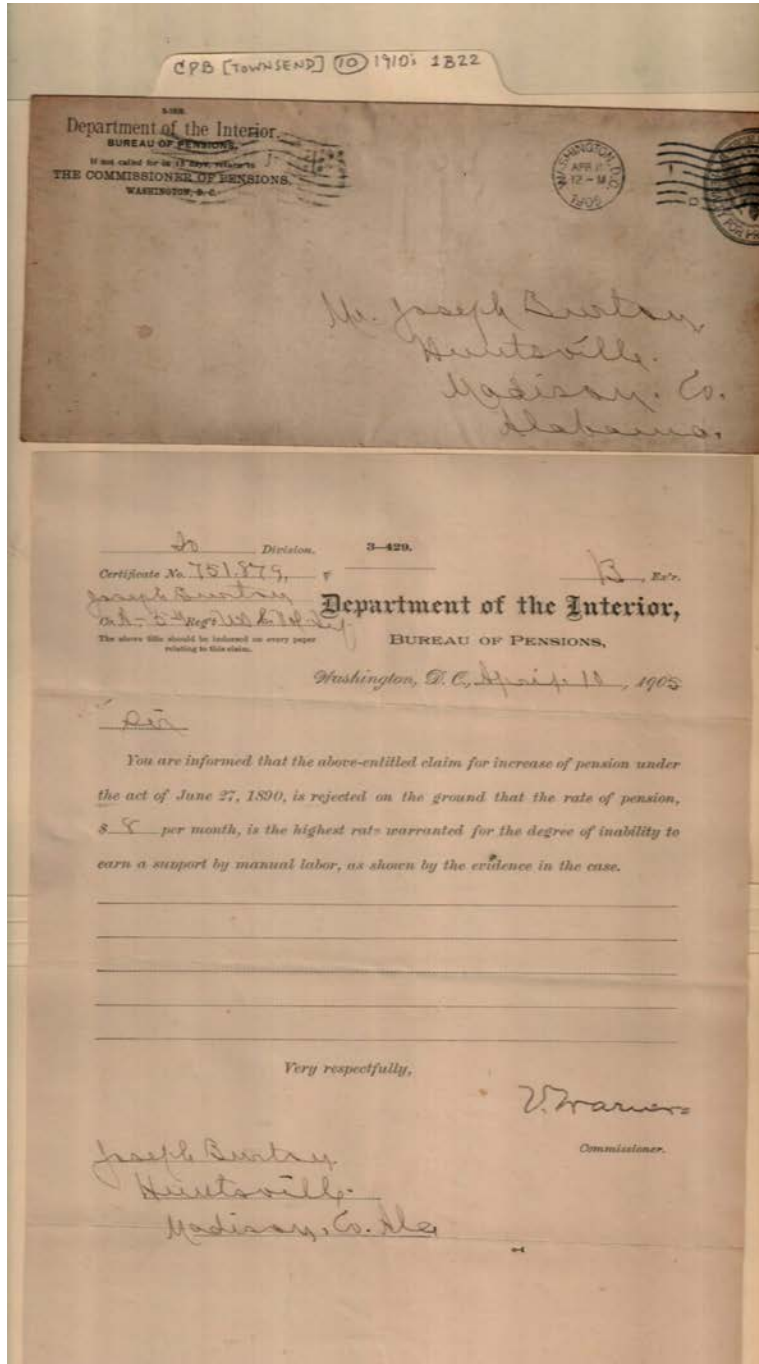 CPB [TOWNSEND] 10 1910's 1B22
Department of the Interior.
BUREAU OF PENSIONS,
If not called for in 15 days, return to
THE COMMISSIONER OF PENSIONS,
WASHINGTON, D. C.
WASHINGTON, D.C.
APR
12-M
1905
Mr. Joseph Burton
Huntsville.
Madison. Co.
Alabama.
So Division.
3—429.
B, Ex'r.
Certificate No. 751.879,
Joseph Burton
The above title should be indorsed on every paper
relating to this claim.
Department of the Interior,
BUREAU OF PENSIONS,
Washington, D. C., April 10, 1905
Sir
You are informed that the above-entitled claim for increase of pension under
the act of June 27, 1890, is rejected on the ground that the rate of pension,
$ 8 per month, is the highest rate warranted for the degree of inability to
earn a support by manual labor, as shown by the evidence in the case.
Very respectfully,
V. Warner
Commissioner.
Joseph Burton
Huntsville.
Madison. Co. Ala